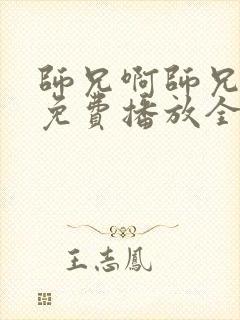 師兄啊師兄
免費播放全
王志鳳